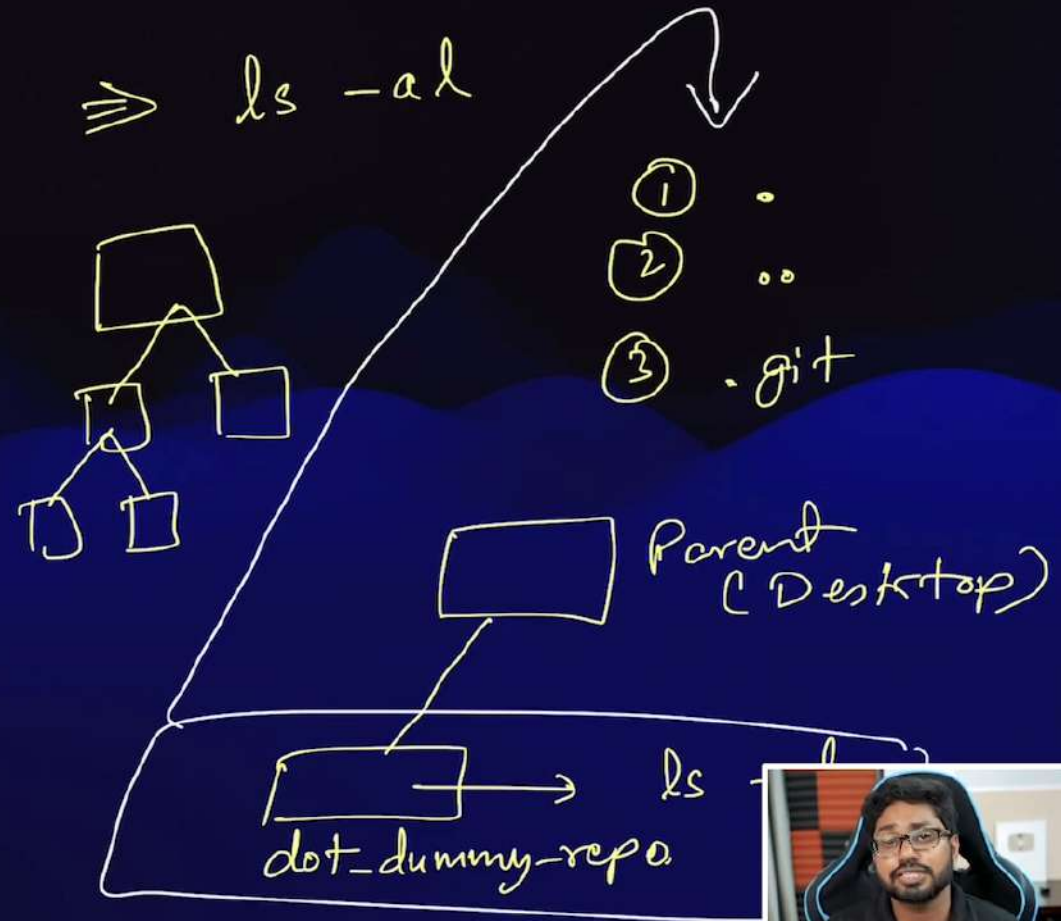 ⇒ ls -al
① .
② ..
③ .git
Parent
(Desktop)
ls
dot_dummy-repo